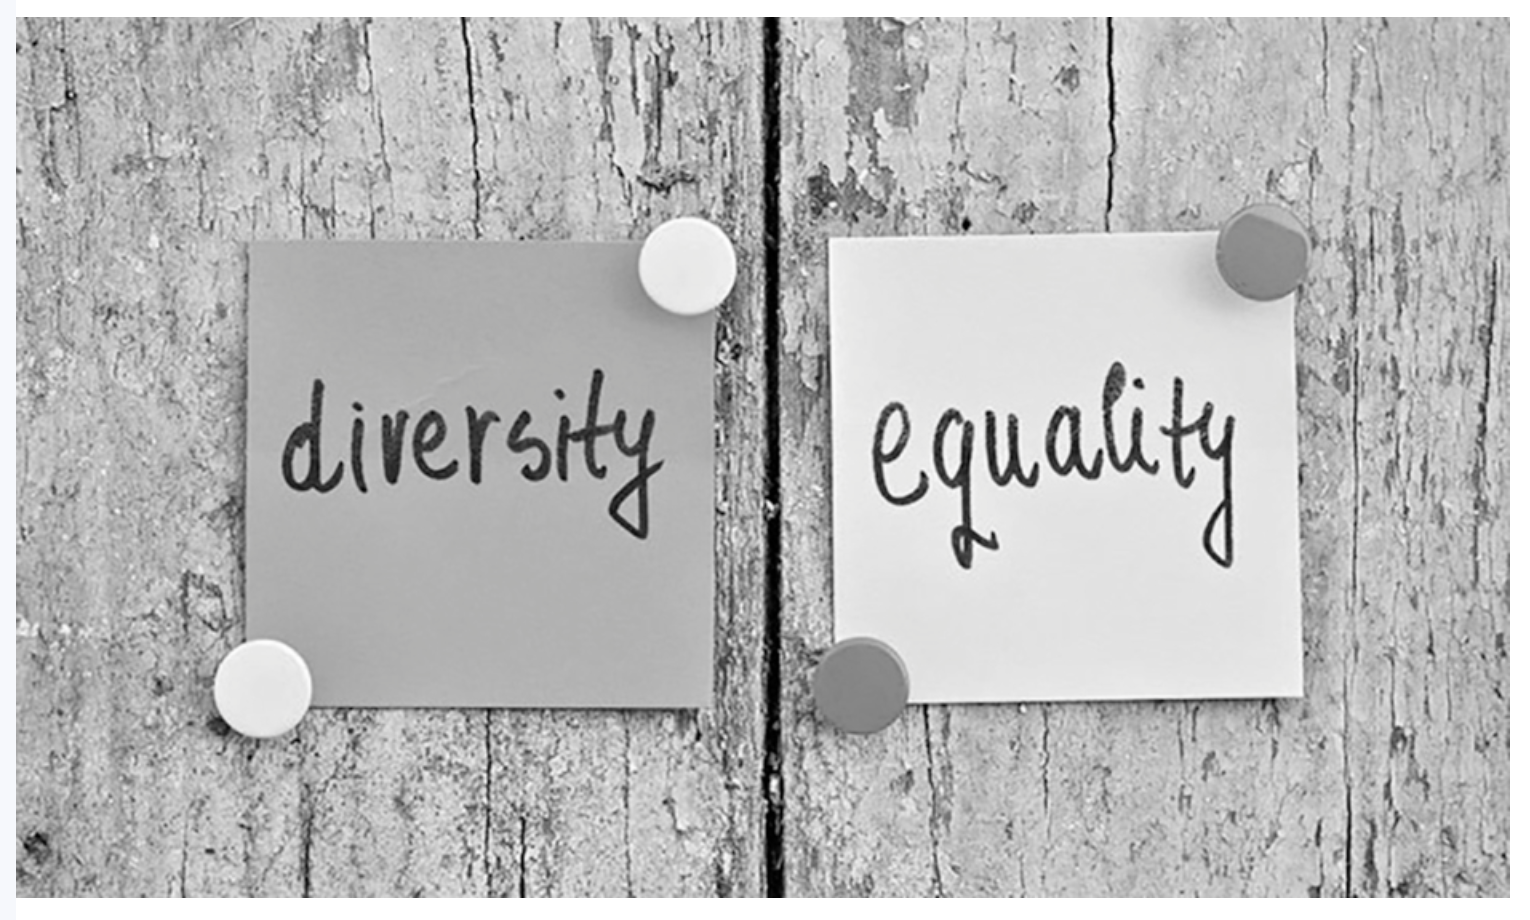 diversity
equality